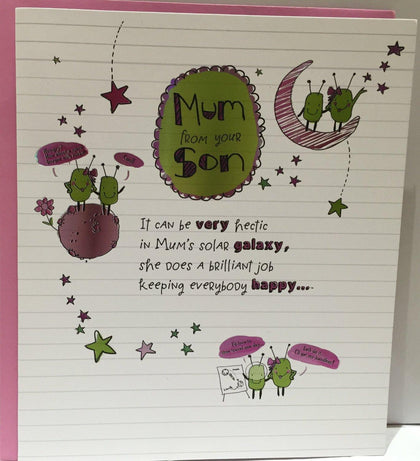 Mum
from your
Son
It can be very hectic
in Mum's solar galaxy,
she does a brilliant job
keeping everybody happy...